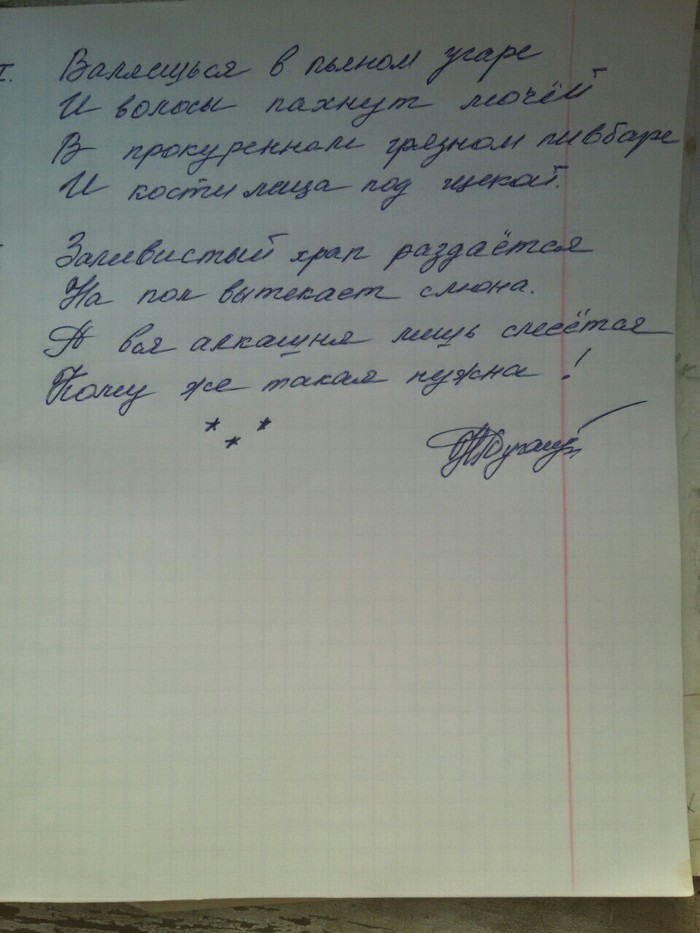 I. Валяешься в пьяном угаре
И волосы пахнут мочёй
В прокуренном грязном пивбаре
И кости леща под щекой.
Заливистый храп раздаётся
На пол вытекает слюна.
А вся алкашня лишь смеётся
Кому же такая нужна!
* * *